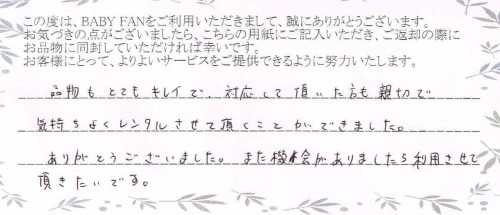 この度は、BABY FANをご利用いただきまして、誠にありがとうございます。
お気づきの点がございましたら、こちらの用紙にご記入いただき、ご返却の際に
お品物に同封していただければ幸いです。
お客様にとって、よりよいサービスをご提供できるように努力いたします。
品物もとてもキレイで、対応して頂いた方も親切で
気持ちよくレンタルさせて頂くことができました。
ありがとうございました。また機会がありましたら利用させて
頂きたいです。